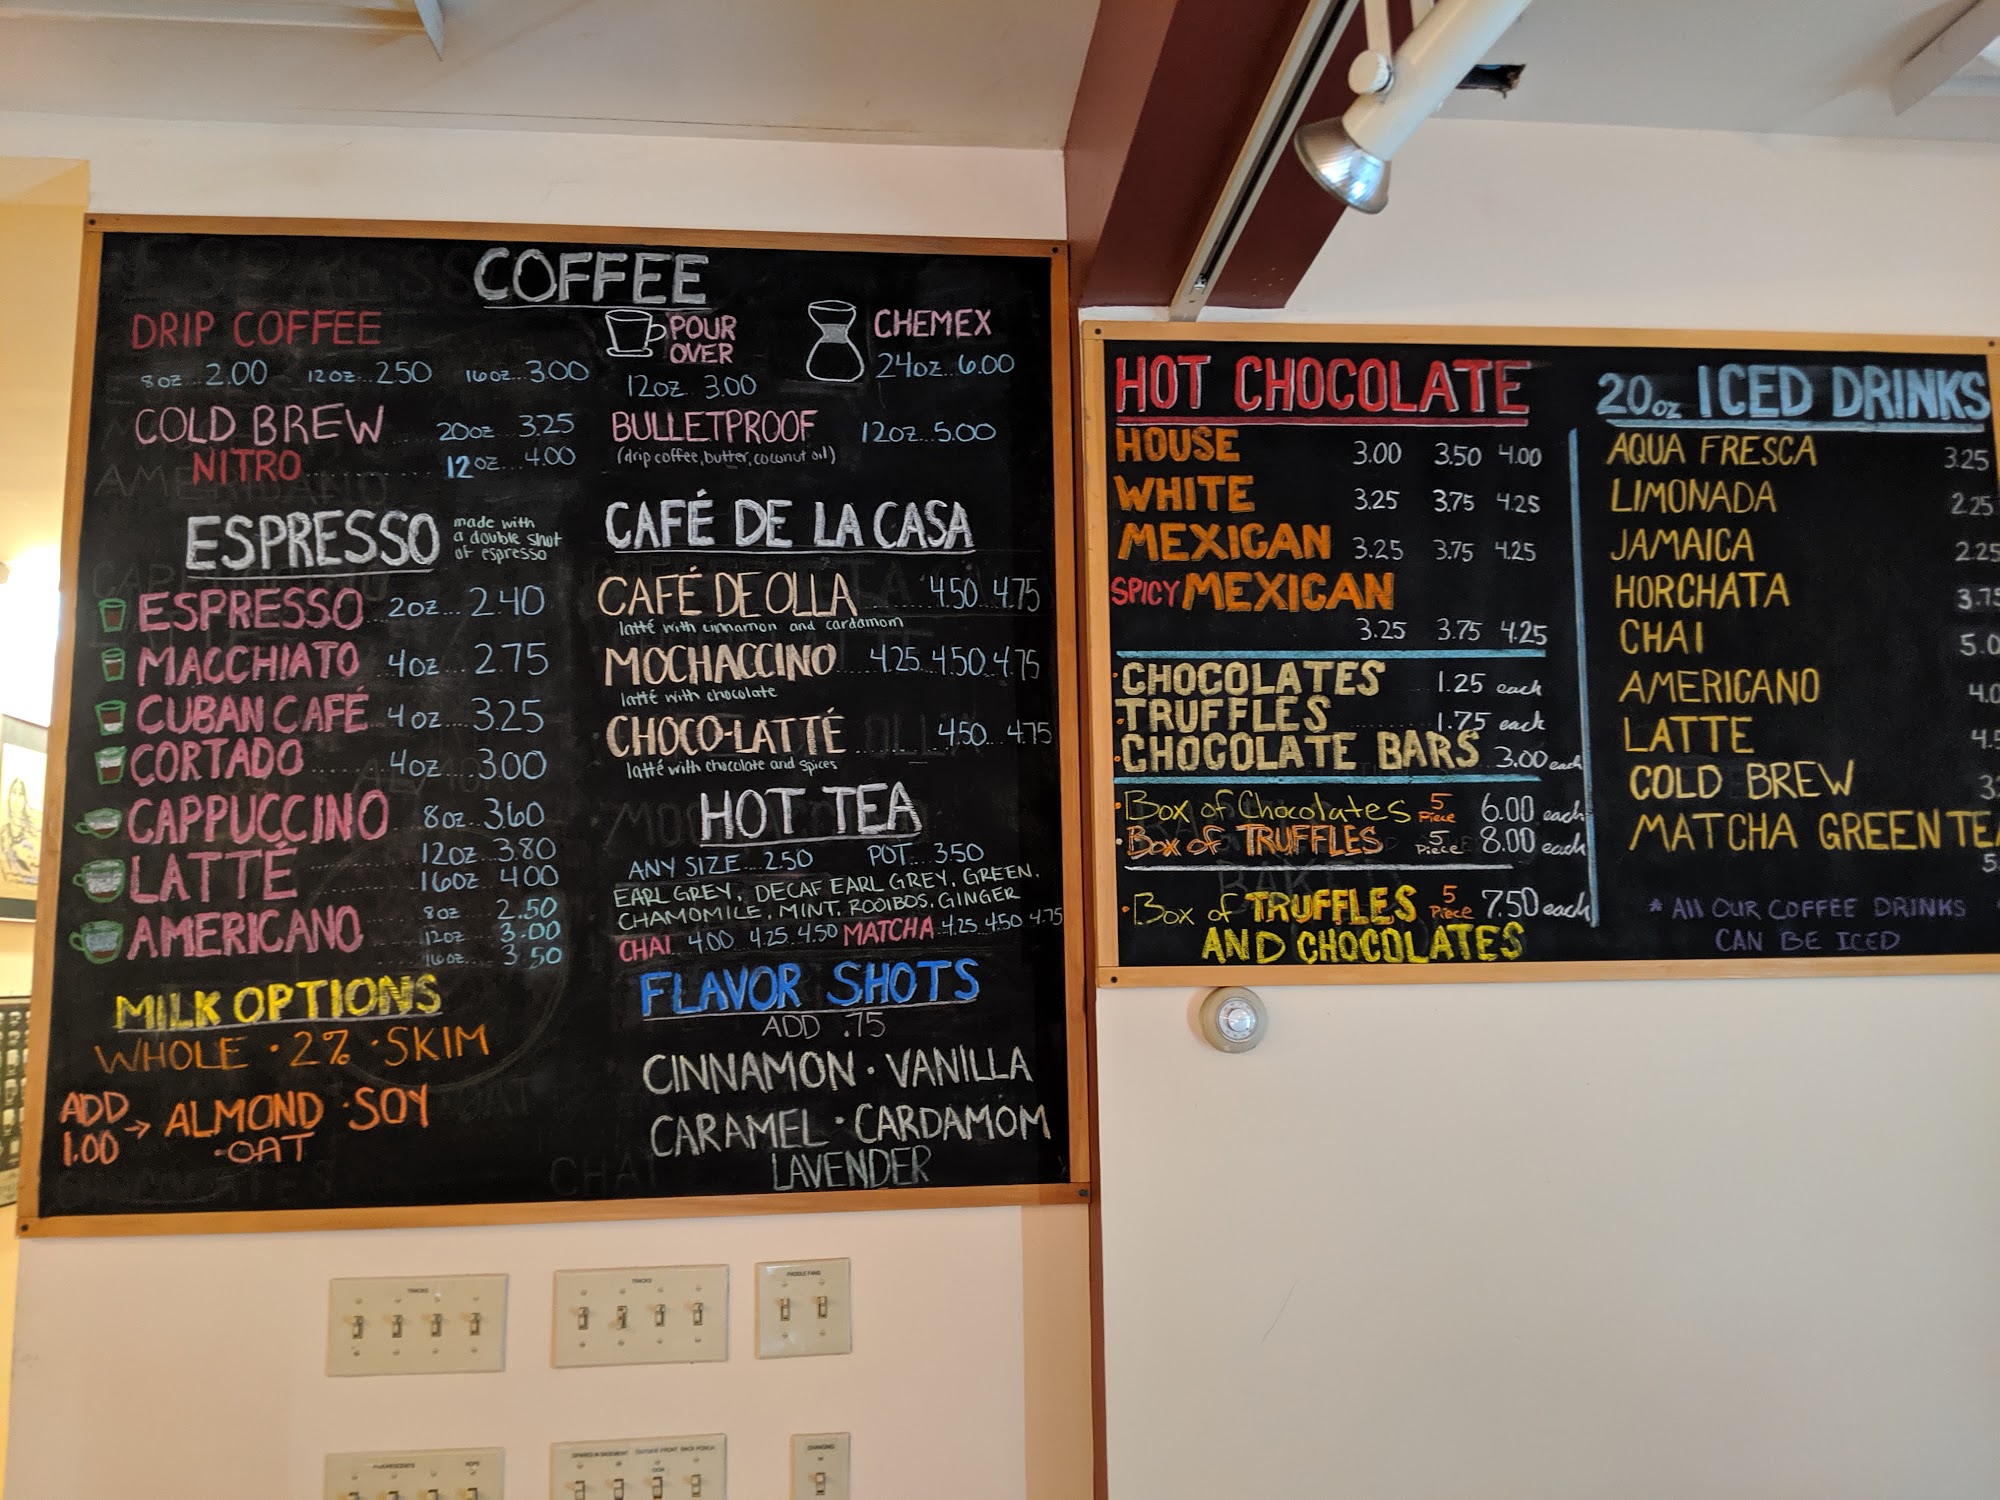 COFFEE
DRIP COFFEE
8oz...2.00 12oz...2.50 16oz...3.00
POUR
OVER
12oz. 3.00
CHEMEX
24oz...6.00
COLD BREW ... 20oz ... 3.25
NITRO ... 12oz ... 4.00
BULLETPROOF 12oz...5.00
(drip coffee, butter, coconut oil)
ESPRESSO
made with
a double shot
of espresso
ESPRESSO 2oz... 2.40
MACCHIATO 4oz... 2.75
CUBAN CAFÉ 4oz... 3.25
CORTADO ... 4oz ... 3.00
CAPPUCCINO 8oz...3.60
LATTÉ 12oz ... 3.80
16oz ... 4.00
AMERICANO 8oz ... 2.50
12oz ... 3.00
16oz ... 3.50
MILK OPTIONS
WHOLE · 2% · SKIM
ADD
1.00 → ALMOND · SOY
· OAT
CAFÉ DE LA CASA
CAFÉ DE OLLA ... 4.50...4.75
latté with cinnamon and cardamom
MOCHACCINO ... 4.25...4.50...4.75
latté with chocolate
CHOCO-LATTÉ ... 4.50...4.75
latté with chocolate and spices
HOT TEA
ANY SIZE...2.50 POT...3.50
EARL GREY, DECAF EARL GREY, GREEN,
CHAMOMILE, MINT, ROOIBOS, GINGER
CHAI 4.00 4.25..4.50 MATCHA 4.25..4.50 4.75
FLAVOR SHOTS
ADD .75
CINNAMON · VANILLA
CARAMEL · CARDAMOM
LAVENDER
HOT CHOCOLATE
HOUSE 3.00 3.50 4.00
WHITE 3.25 3.75 4.25
MEXICAN 3.25 3.75 4.25
SPICY MEXICAN
3.25 3.75 4.25
· CHOCOLATES 1.25 each
· TRUFFLES 1.75 each
· CHOCOLATE BARS 3.00 each
· Box of Chocolates 5 Piece 6.00 each
· Box of TRUFFLES 5 Piece 8.00 each
· Box of TRUFFLES 5 Piece 7.50 each
AND CHOCOLATES
20oz ICED DRINKS
AQUA FRESCA 3.25
LIMONADA 2.25
JAMAICA 2.25
HORCHATA 3.75
CHAI 5.0
AMERICANO 4.0
LATTE 4.5
COLD BREW 3
MATCHA GREEN TEA
5
* All OUR COFFEE DRINKS
CAN BE ICED
TRACKS
TRACKS
PADDLE FANS